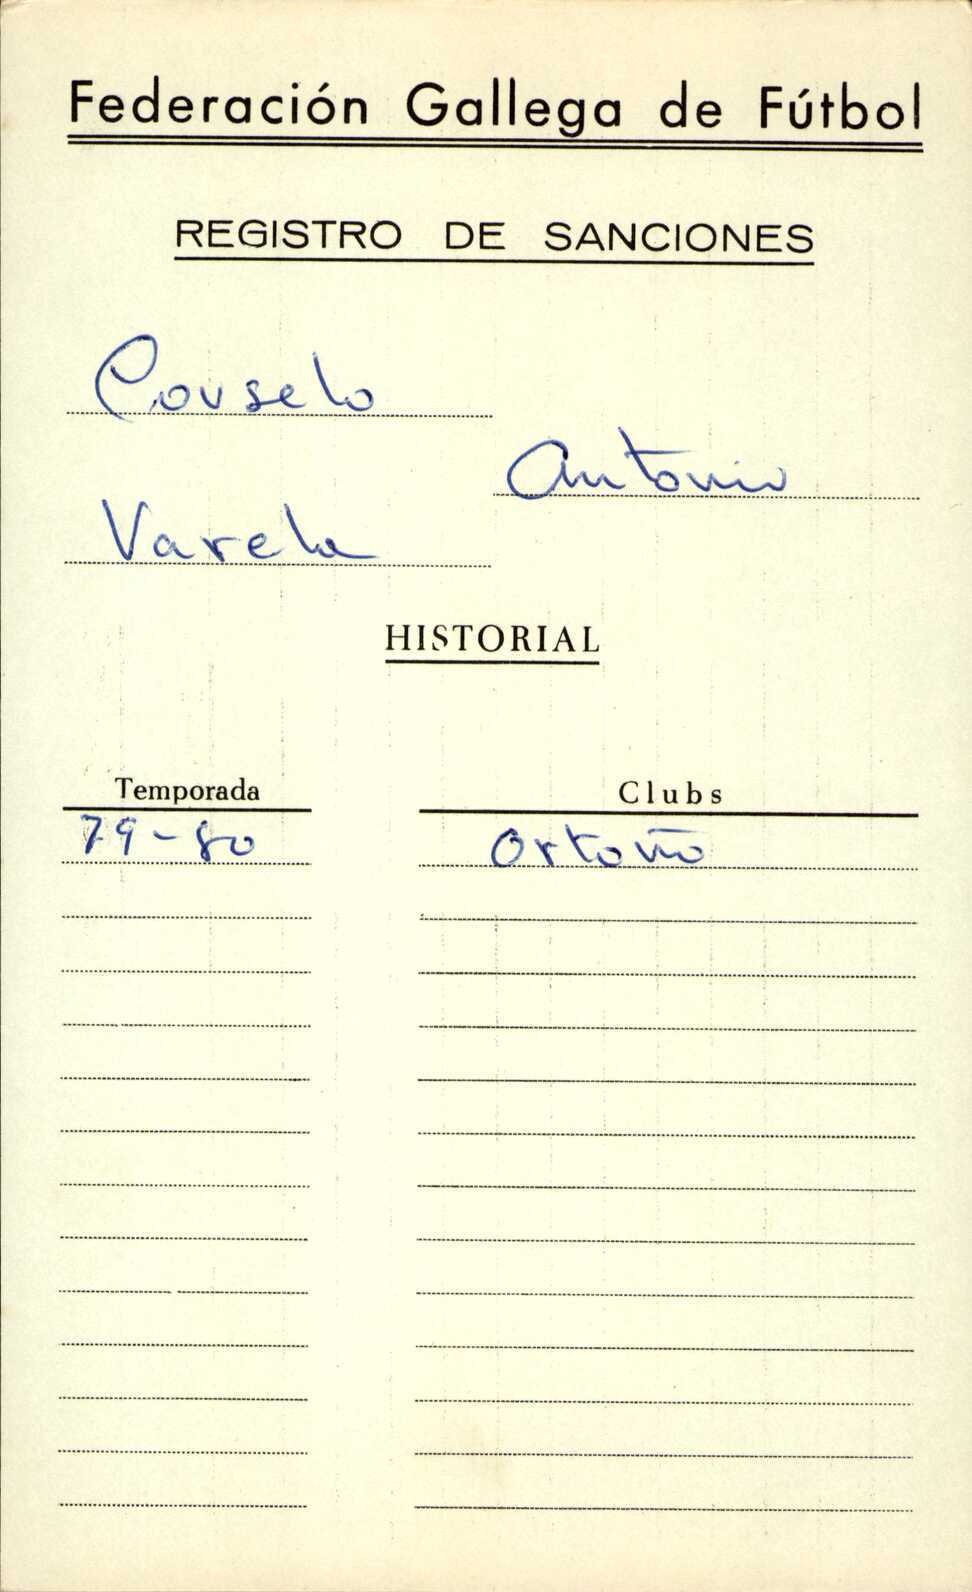 Federación Gallega de Fútbol
REGISTRO DE SANCIONES
Couselo
Antonio
Varela
HISTORIAL
Temporada Clubs
79-80 Ortoño